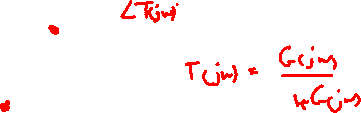 ∠T(jω)
T(jω) = G(jω)
1+G(jω)